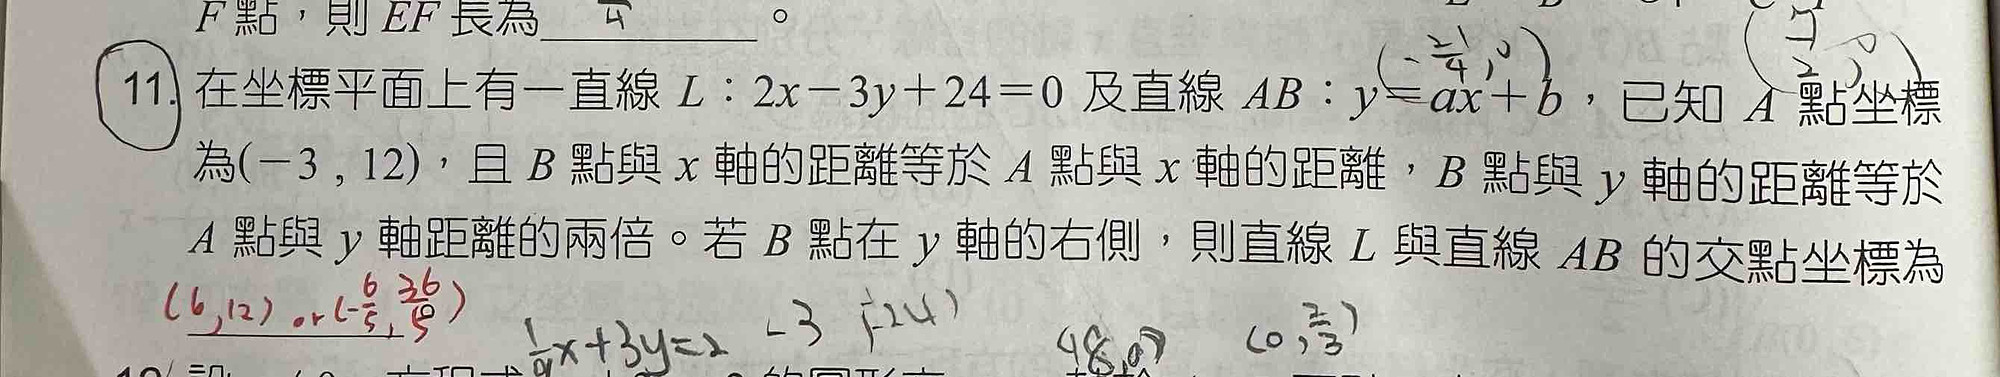 F點，則EF長為 4 。
11. 在坐標平面上有一直線 L：2x－3y＋24＝0 及直線 AB：y＝ax＋b，已知 A 點坐標
為(－3 , 12)，且 B 點與 x 軸的距離等於 A 點與 x 軸的距離，B 點與 y 軸的距離等於
A 點與 y 軸距離的兩倍。若 B 點在 y 軸的右側，則直線 L 與直線 AB 的交點坐標為
(6,12) or (-6/5, 36/5)
x+3y=2 -3 (0, 2/3)